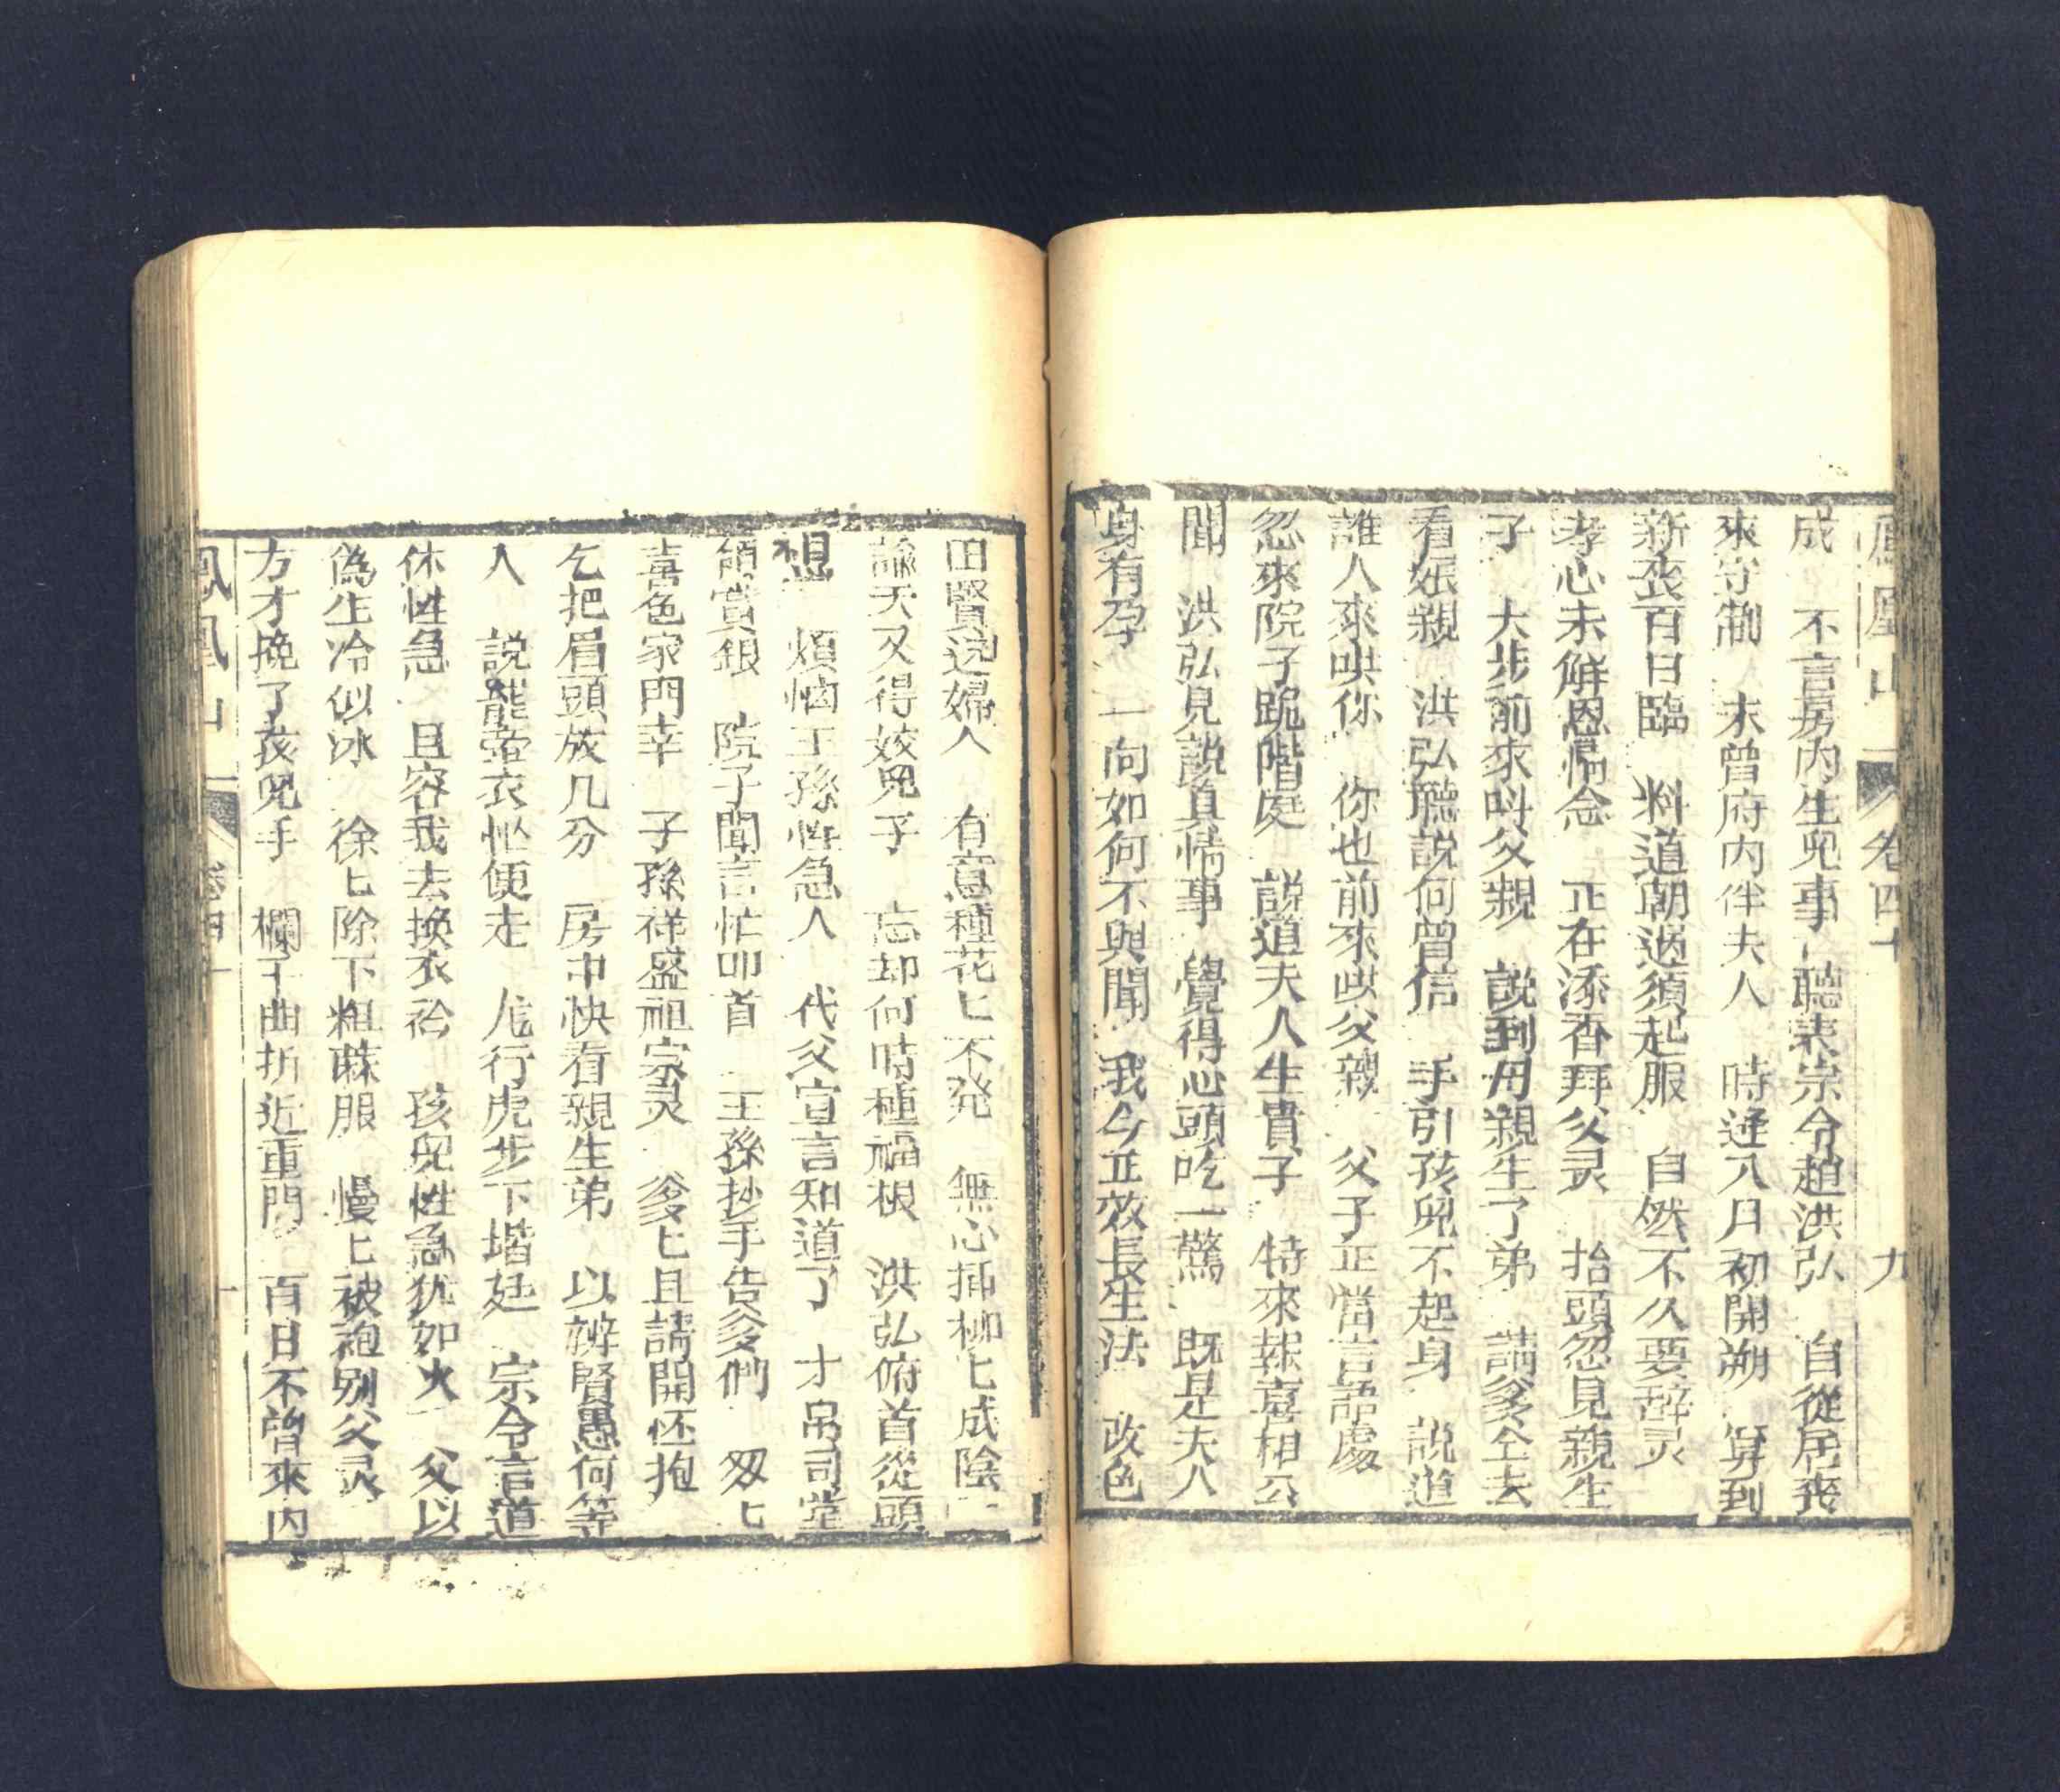 鳳凰山 卷四十 九
成 不言房內生兒事 聽表宗令趙洪弘 自從居喪
來守制 未曾府內伴夫人 時逢八月初開朔 算到
新喪百日臨 料道朝過須起服 自然不久要辞灵
孝心未解恩情念 正在添香拜父灵 抬頭忽見親生
子 大步前來叫父親 說到母親生了弟 請爹仝去
看娘親 洪弘聽說何曾信 手引孩兒不起身 說道
誰人來哄你 你也前來哄父親 父子正當言語處
忽來院子跪階庭 說道夫人生貴子 特來報喜相公
聞 洪弘見說真情事 覺得心頭吃一驚 既是夫人
身有孕 一向如何不與聞 我今正效長生法 改色
田賢這婦人 有意種花匕不發 無心插柳匕成陰
諭天又得姣兒子 忘却何時種福根 洪弘俯首從頭
想 煩惱王孫性急人 代父宣言知道了 才吊司堂
領賞銀 院子聞言忙叩首 王孫抄手告爹們 双匕
喜色家門幸 子孫祥盛祖宗灵 爹匕且請開怀抱
乞把眉頭放几分 房中快看親生弟 以辨賢愚何等
人 說罷牽衣忙便走 龙行虎步下堦廷 宗令言道
休性急 且容我去換衣衿 孩兒性急犹如火 父以
偽生冷似冰 徐匕除下粗蔴服 慢匕被袍别父灵
方才挽了孩兒手 欄干曲折近重門 百日不曾來內
鳳凰山 卷四十